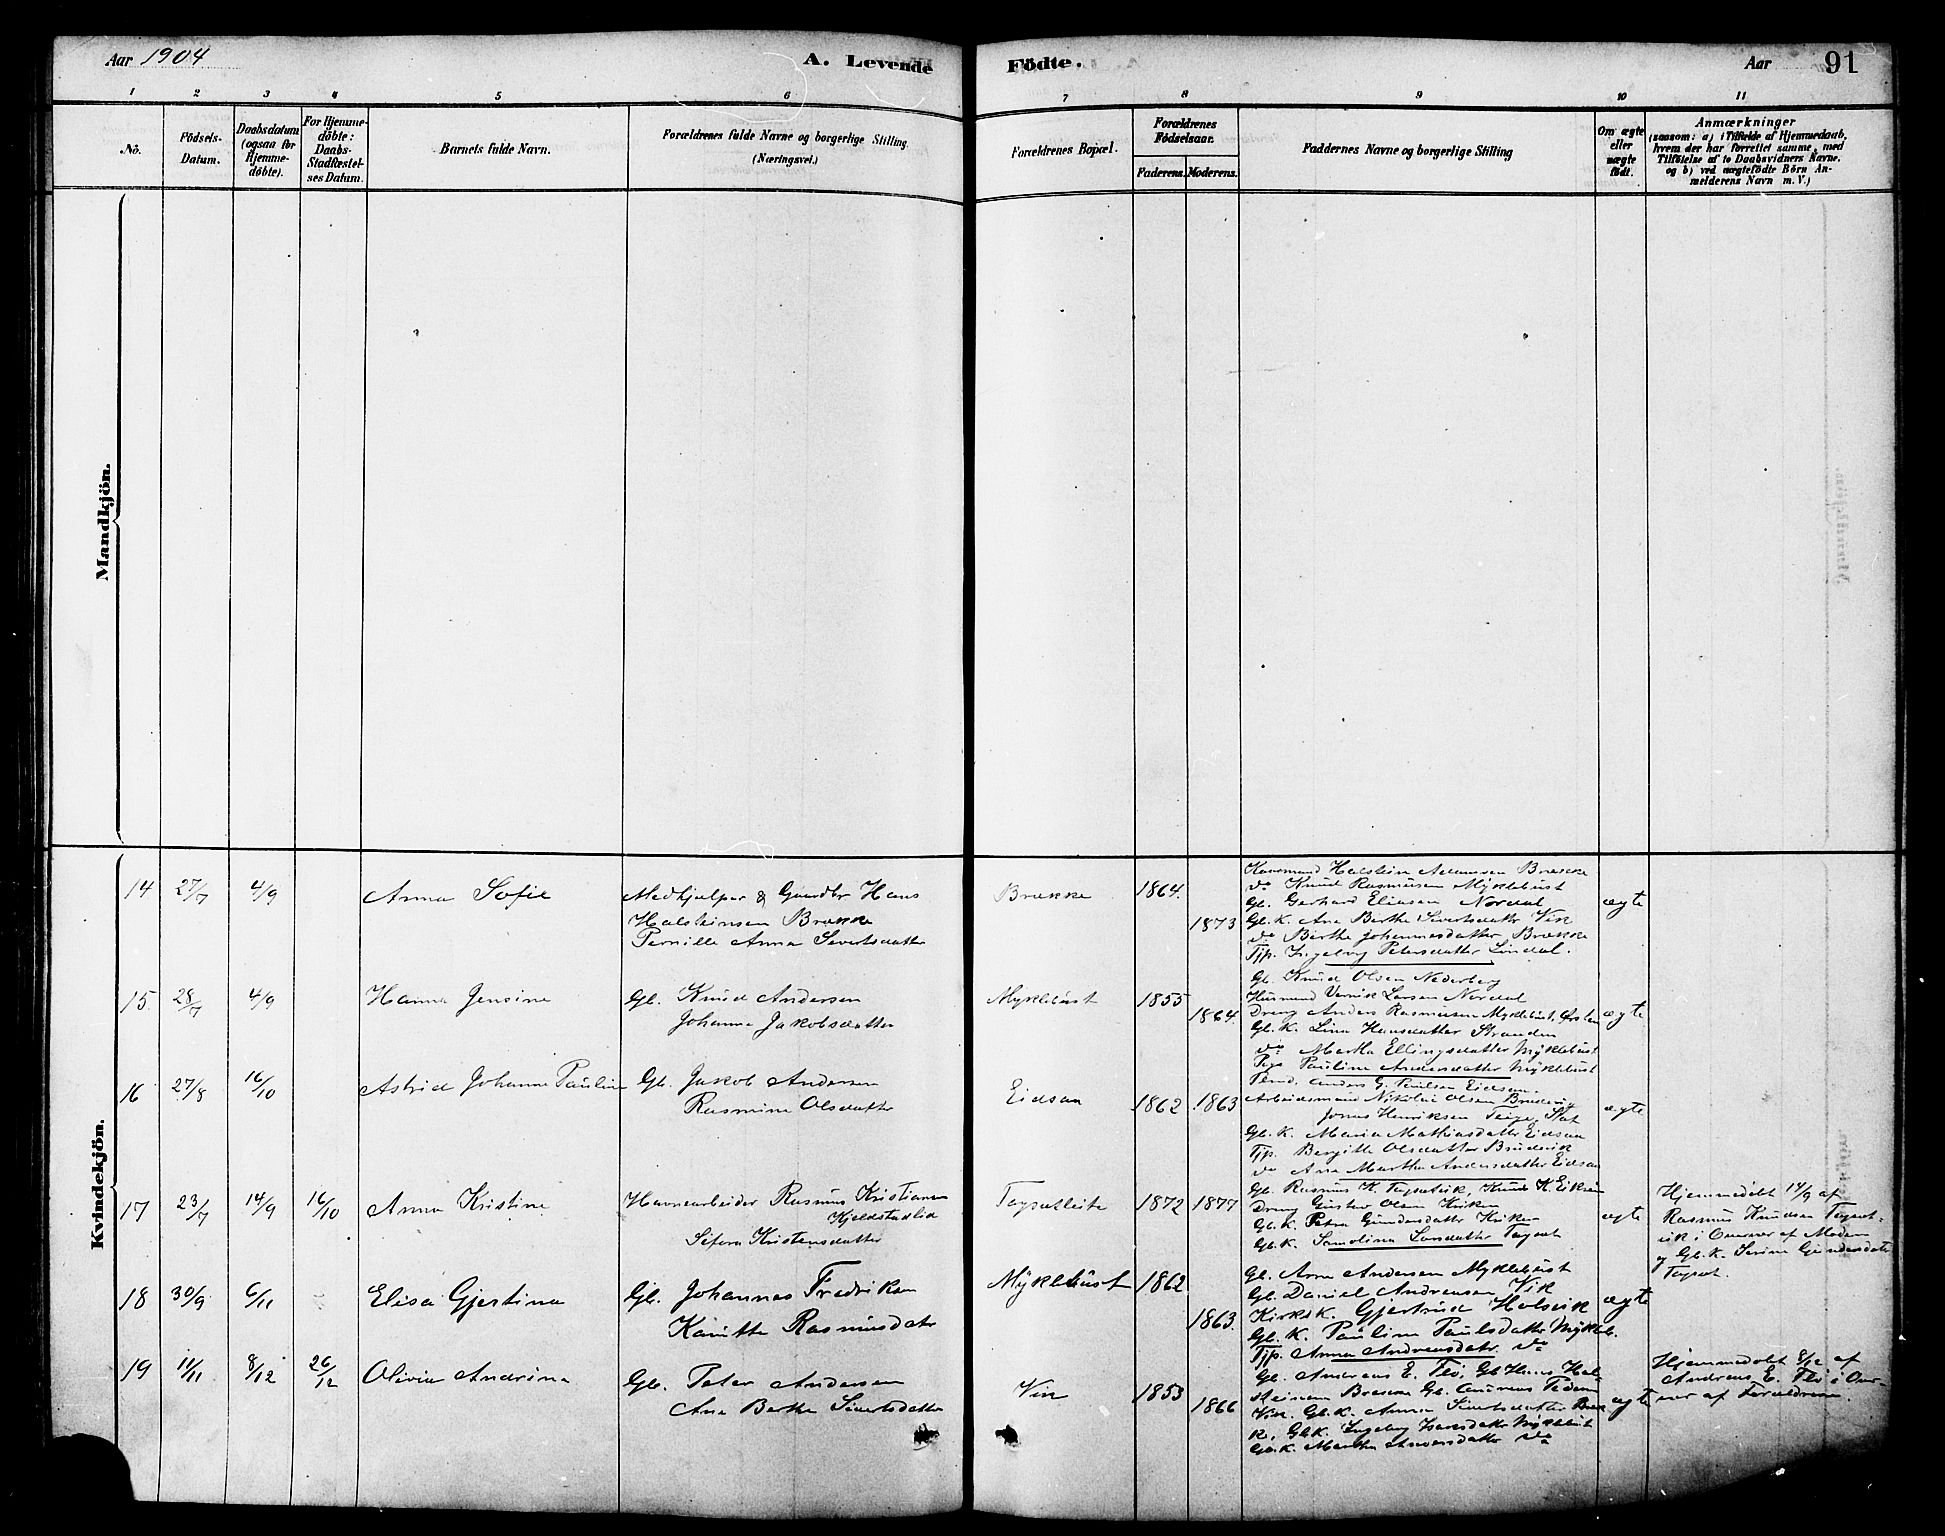 Aar 1904
A. Levende Födte.
Aar
91
1 2 3 4 5 6 7 8 9 10 11
No.
Födsels-Datum.
Daabsdatum (ogsaa for Hjemme-døbte).
For Hjemme-døbte: Daabs-Stadfæstel-ses Datum.
Barnets fulde Navn.
Forældrenes fulde Navne og borgerlige Stilling (Næringsvei.)
Forældrenes Bopæl.
Forældrenes Fødselsaar.
Faderens. Moderens.
Faddernes Navne og borgerlige Stilling
Om ægte eller uægte født.
Anmærkninger
(saasom: a) i Tilfælde af Hjemmedaab,
hvem der har forrettet samme, med
Tilføielse af to Daabsvidners Navne.
og b) ved uægtefødte Börn An-
melderens Navn m. V.)
Mandkjön.
Kvindekjön.
14 27/7 4/9 Anna Sofie
Medhjælper & Gaardbr Hans
Halsteinsen Brække
Pernille Anna Sivertsdatter
Brække 1864. 1873
Kaarmand Halstein Brække
do Knud Rasmusen Myklebust
Gb. Gerhard Eliasen Nordal
Gb.K. Ane Berthe Sivertsdatter Vik
do Berthe Johannesdatter Brække
Tjp. Ingeborg Petersdatter Lindal.
ægte
15 28/7 4/9 Hanna Jensine
Gb. Knud Andersen
Johanne Jakobsdatter
Myklebust 1855 1864.
Gb. Knud Olsen Nederberg
Husmand Larsen Nordal
Dreng Anders Rasmusen Myklebust, Ørsten
Gb.K. Lina Hansdatter Stranden
do Martha Ellingsdatter Myklebust
Pige Pauline Andersdatter Myklebust
ægte
16 27/8 16/10 Astrid Johanne Pauline
Gb. Jakob Andersen
Rasmine Olsdatter
Eidsaa 1862 1863
Anders G. Paulsen Eidsaa.
Arbeidsmand Nikolai Olsen
Jonas Henriksen Teige, Stat
Gb.K. Maria Mathiasdatter Eidsaa
Tjp. Bergitte Olsdatter
do Ane Martha Andersdatter Eidsaa
ægte
17 23/7 14/9 16/10 Anna Kristine
Havnearbeider Rasmus Kristiansen
Kjeldstadlid
Sefora Kristensdatter
1872 1877
Gb. Rasmus K. Knud K. Eiksun
Dreng Gustav Olsen
Gb.K. Petra Gundersdatter
Gb.K. Samolina Larsdatter
ægte
Hjemmedøbt 14/9 af
Rasmus Knudsen
af Moderen
og Gb.K.
18 30/9 6/11 Elisa Gjertina
Gb. Johannes Fredriksen
Kanutte Rasmusdatr
Myklebust 1862 1863.
Gb. Arne Andersen Myklebust
Gb. Daniel Andreasen Vik
Kirksk. Gjertrud Holsvik
Gb.K. Pauline Paulsdatter Mykleb.
Tjp. Anna Andreasdatr. do
ægte
19 11/11 8/12 26/12 Olivia Andrina
Gb. Peter Andersen
Ane Berthe Sivertsdatter
Vik 1853 1866
Gb. Andreas E. Flø, Gb Hans Hal-
steinsen
Vik. Gb.K. Anna Sivertsdatter
Gb.K. Ingeborg Myklebust
Gb.K. Martha Andersdatter do
ægte
Hjemmedøbt 8/12 af
Andreas E. Flø i Over-
vær af Forældrene.